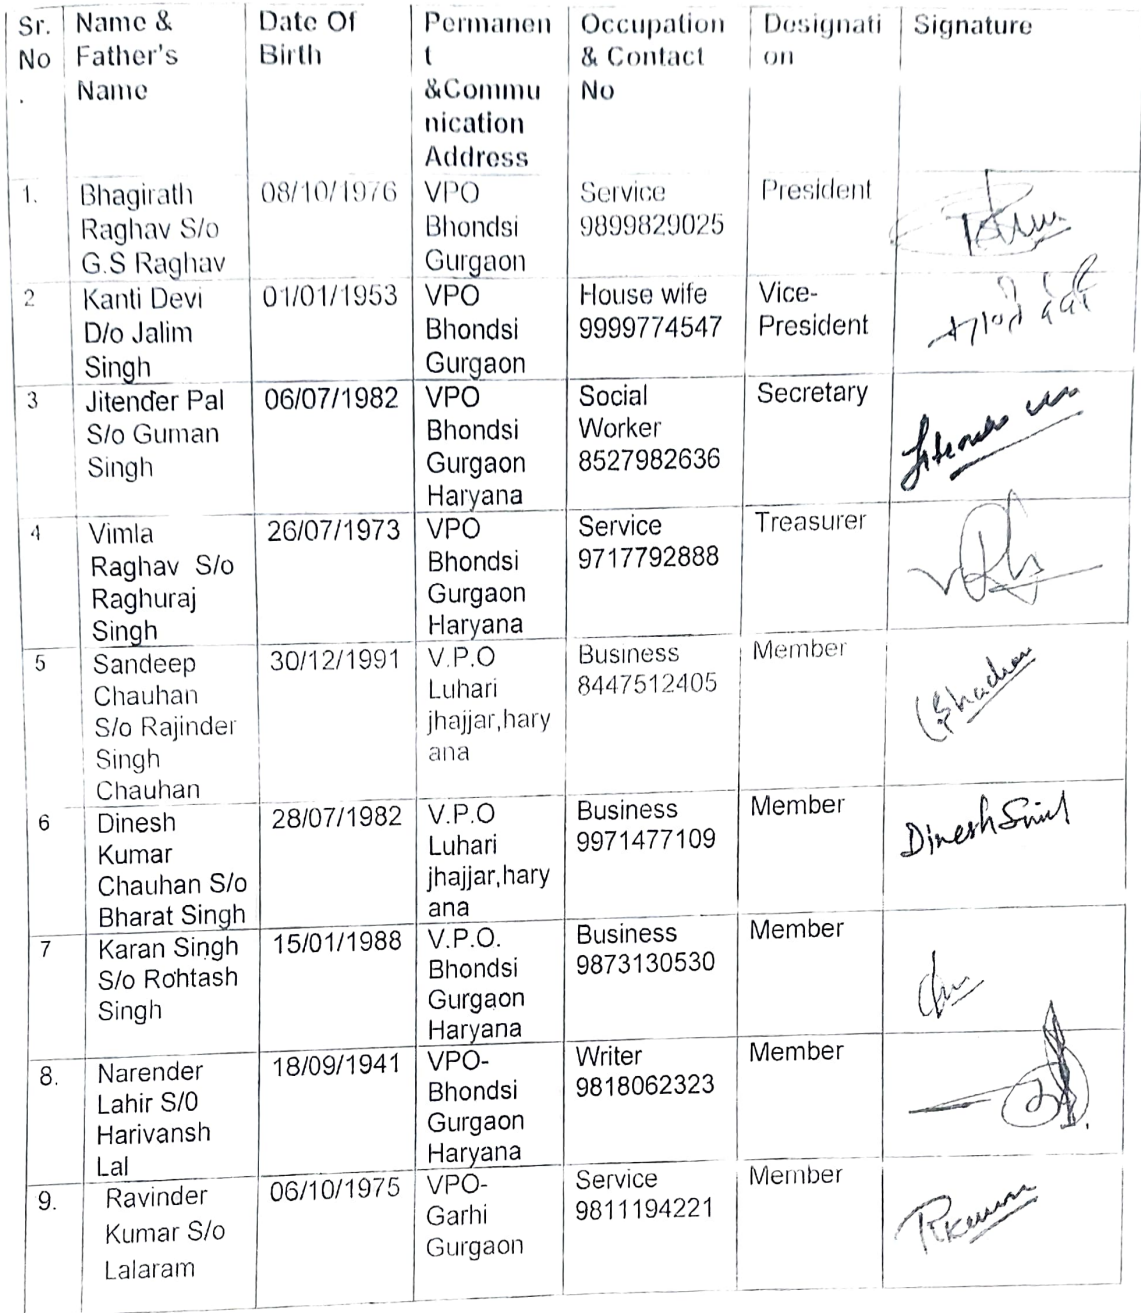 Sr. No .
Name & Father's Name
Date Of Birth
Permanen t &Commu nication Address
Occupation & Contact No
Designati on
Signature
1.
Bhagirath
Raghav S/o
G.S Raghav
08/10/1976
VPO
Bhondsi
Gurgaon
Service
9899829025
President
2
Kanti Devi
D/o Jalim
Singh
01/01/1953
VPO
Bhondsi
Gurgaon
House wife
9999774547
Vice-
President
3
Jitender Pal
S/o Guman
Singh
06/07/1982
VPO
Bhondsi
Gurgaon
Haryana
Social
Worker
8527982636
Secretary
4
Vimla
Raghav S/o
Raghuraj
Singh
26/07/1973
VPO
Bhondsi
Gurgaon
Haryana
Service
9717792888
Treasurer
5
Sandeep
Chauhan
S/o Rajinder
Singh
Chauhan
30/12/1991
V.P.O
Luhari
jhajjar,hary
ana
Business
8447512405
Member
6
Dinesh
Kumar
Chauhan S/o
Bharat Singh
28/07/1982
V.P.O
Luhari
jhajjar,hary
ana
Business
9971477109
Member
Dinesh
7
Karan Singh
S/o Rohtash
Singh
15/01/1988
V.P.O.
Bhondsi
Gurgaon
Haryana
Business
9873130530
Member
8.
Narender
Lahir S/0
Harivansh
Lal
18/09/1941
VPO-
Bhondsi
Gurgaon
Haryana
Writer
9818062323
Member
9.
Ravinder
Kumar S/o
Lalaram
06/10/1975
VPO-
Garhi
Gurgaon
Service
9811194221
Member